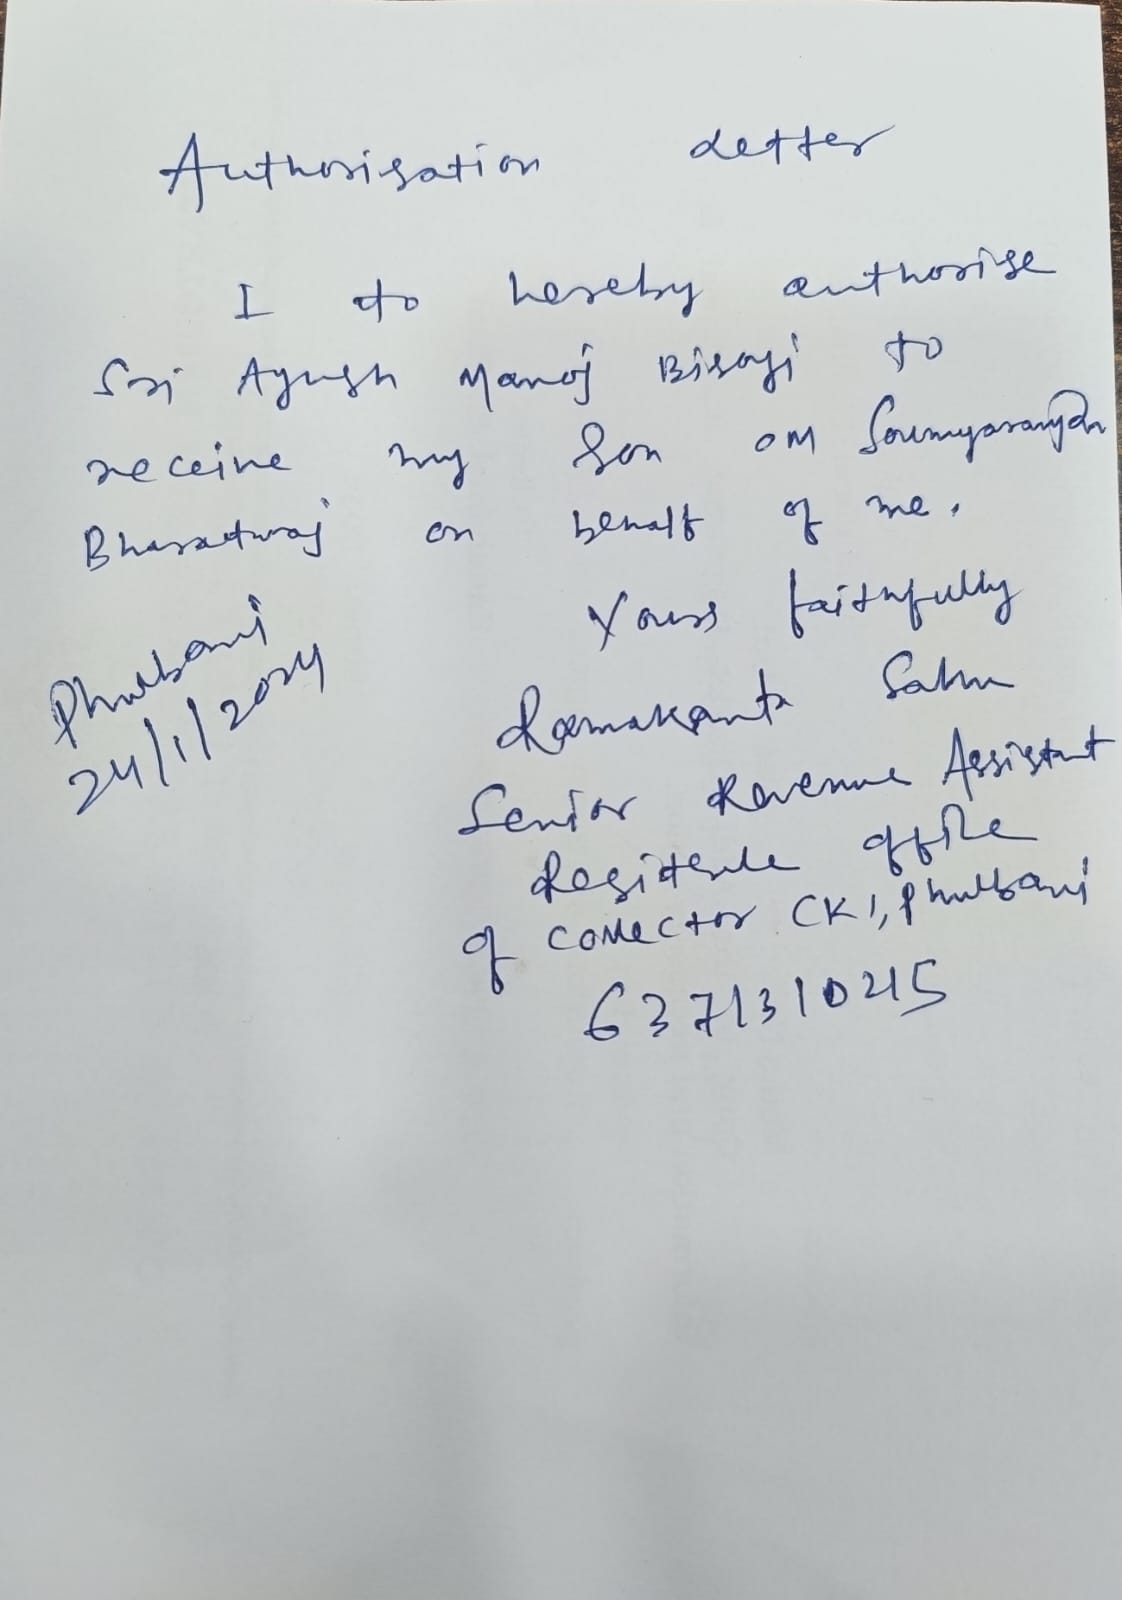 Authorisation Letter
I do hereby authorise
Sri Ayush Manoj Bisoyi to
receive my Son OM Soumyaranjan
Bharadwaj on behalf of me.
Yours faithfully
Phulbani
24/1/2024
Ramakanta Sahu
Senior Revenue Assistant
office
of Collector CK!, Phulbani
6371310215